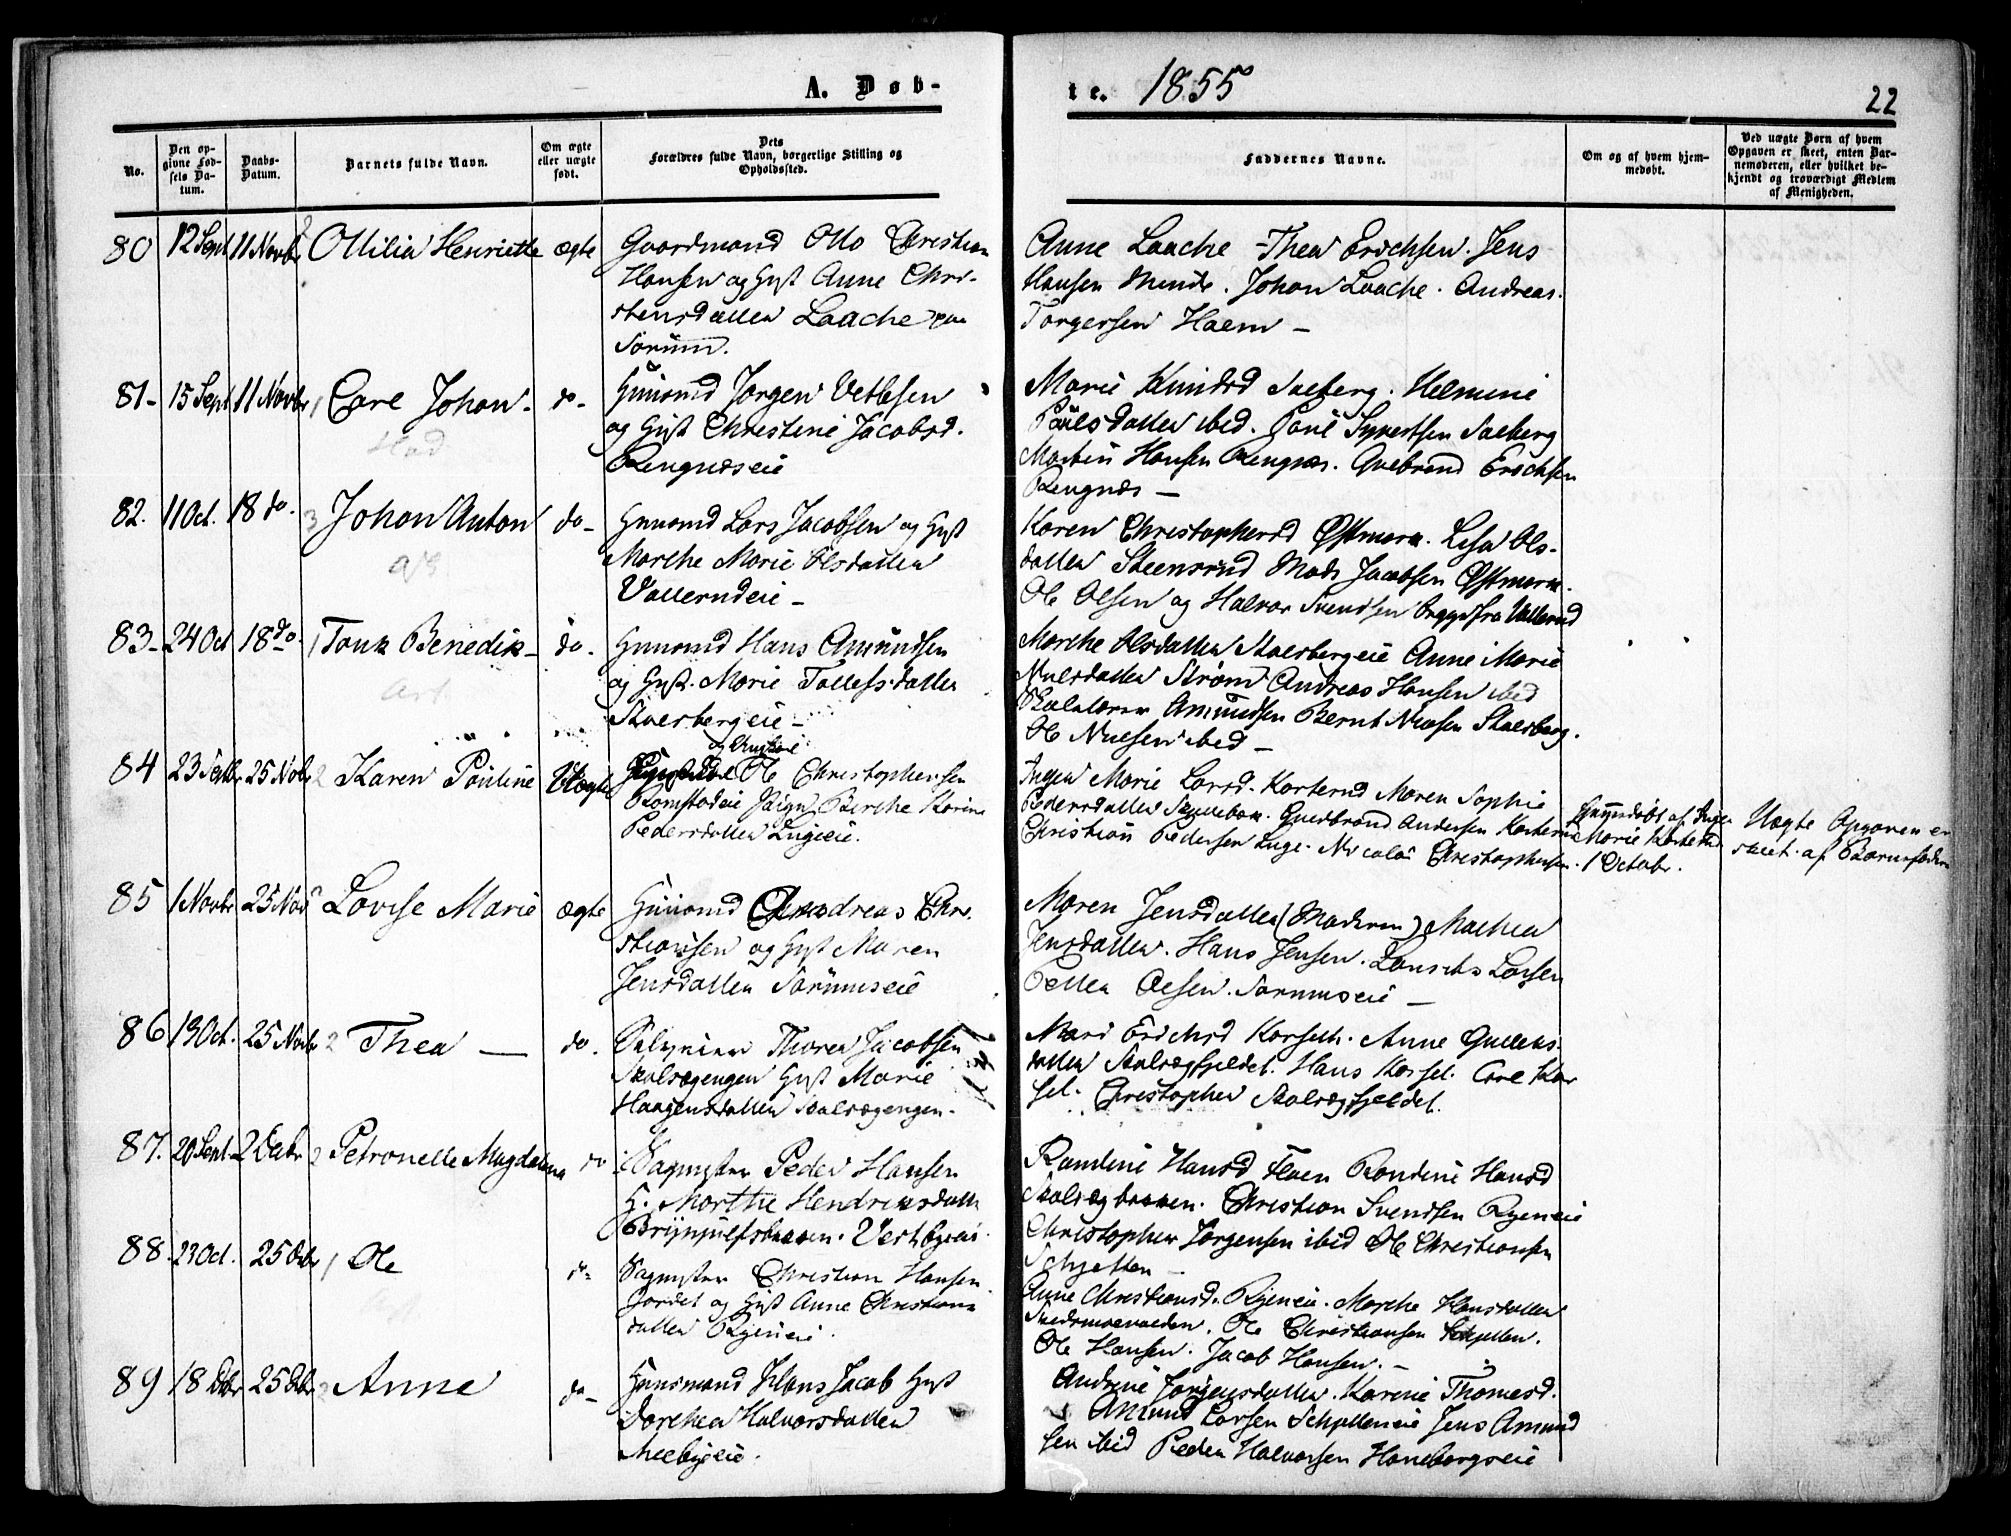 A. Døb-
te. 1855
22
No.
Den opgivne Fødsels Datum.
Daabs-Datum.
Barnets fulde Navn.
Om ægte eller uægte født.
Dets Forældres fulde Navn, borgerlige Stilling og Opholdssted.
Faddernes Navne.
Om og af hvem hjemmedøbt.
Ved uægte Børn af hvem Opgaven er skeet, enten Barnemoderen, eller hvilket bekjendt og troværdigt Medlem af Menigheden.
80 12 Sept 11 Novbr Ottilia Henriette ægte Gaardmand Otto Christian
Hansen og Hust Anne Chri-
stensdatter Laache paa
Sørum.
Anne Laache Thea Erichsen. Jens
Hansen Johan Laache. Andreas
Torgersen Haem –
81- 15 Sept 11 Novbr Carl Johan. do- Huusmd Jørgen Vetlesen
og Hust Christine Jacobsd.
Rengnæseie
Marie Knudsd Solberg. Helmine
Paulsdatter ibid. Paul Syvertsen Solberg
Martin Hansen Rengnæs. Gulbrand Erichsen
Rengnæs –
82. 11 Oct. 18 do. Johan Anton do- Huusmd Lars Jacobsen og Hust
Marthe Marie Olsdatter
Vallerudeie –
Karen Christophersd Østmora. Lisa Ols-
datter Steensrud Mads Jacobsen Østmora.
Ole Olsen og Halvor Svendsen begge fra Vallerud
83- 24 Oct 18 do. Benedik- do- Huusmd Hans Amundsen
og Hust. Marie Tollefsdatter
Stalsbergeie –
Marthe Olsdatter Stalsbergeie Anne Marie
Nielsdatter Strøm Andreas Hansen ibid
Amundsen Bernt Nielsen Stalsberg.
Ole Nielsen ibid –
84 23 Septbr 25 Nobr Karen Pauline Uægte
og Ungkarl
Ole Christophersen
Romstadeie Pige Berthe Karine
Pedersdatter Lugieie.
Inger Marie Larsd. Korterud Maren Sophie
Pedersdatter Gundbrand Andersen Korterud
Christian Pedersen Luge. Nicolai Christophersen.
Hjemdøbt af Inger
Marie Korterud
1 Octobr.
Uægte Opgaven er
skeet af Barnefaderen
85 1 Novbr 25 Nov Lovise Marie ægte Huusmd Andreas Chri-
stiansen og Hust Maren
Jensdatter Sørumseie
Maren Jensdatter (Moderen) Mathea
Jensdatter. Hans Jensen. Larsen
Olsen. Sørumseie –
86 19 Oct. 25 Novbr Thea – do. Selveier Thorer Jacobsen
Skalrægengen Hust Marie
Haagensdatter Skalrægengen.
Mari Erichsd Korseth. Anne Gulliks-
datter Skalrægfjeldet. Hans Korsel. Carl Kor
sel. Christopher Skalrægfjeldet.
87. 20 Sept. 2 Debr Petronelle Magdalena do Sagmester Peder Hansen
H. Marthe Hendriksdatter
Brynjulfsbakken. Vestbyeie.
Randine Hansd Haen Randine Hansd
Skalrægbakken. Christian Svendsen Ryeneie
Christopher Jørgensen ibid Ole Christiansen
Schjetten –
88. 23 Oct. 25 Dbr Ole do- Sagmester Christian Hansen
Jordet og Hust Anne Christians
datter Ryeneie.
Anne Christiansd. Ryeneie. Marthe Hansdatter
Ole Christiansen Schjetten.
Ole Hansen. Jacob Hansen. –
89 18 Dbr 25 Dbr Anne do- Huusmand Hans Jacob Hust
Dorthea Halvorsdatter
Melbyeie.
Andrine Jørgensdatter. Karine Thomesd.
Amund Larsen Schjetteneie Jens Amund
sen ibid Peder Halvorsen Haneborgseie